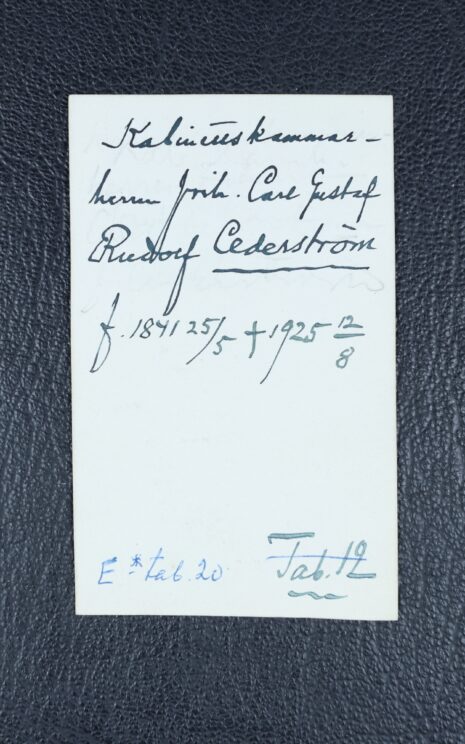 Kabinettskammar-
herrn frih. Carl Gustaf
Rudolf Cederström
f. 1841 25/5 † 1925 12/8
E * tab. 20 Tab. 12